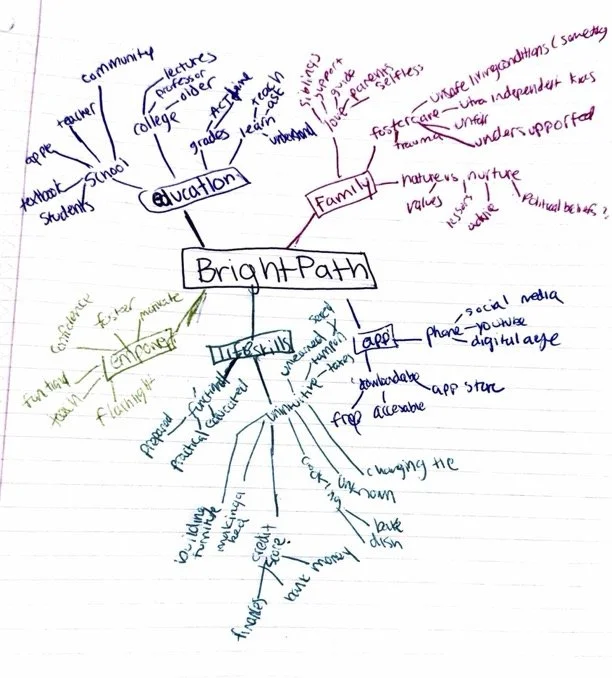 community
lectures
professor
older
college
teacher
apple
School
textbook
students
education
grades
teach
learn-ask
understand
siblings
support
guide
love
parents
selfless
foster care
trauma
unsafe living conditions (
ultra independent kids
unfair
undersupported
Family
nature vs nurture
values
lessons
political beliefs?
Bright Path
confidence
foster
motivate
empower
teach
life skills
functional
prepared
practical
educated
unintuitive
taxes
app
phone
social media
youtube
digital age
downloadable
free
accesable
app store
building
furniture
making a
bed
credit
score?
finances
bank
money
cooking
unknown
bake
dish
changing tire